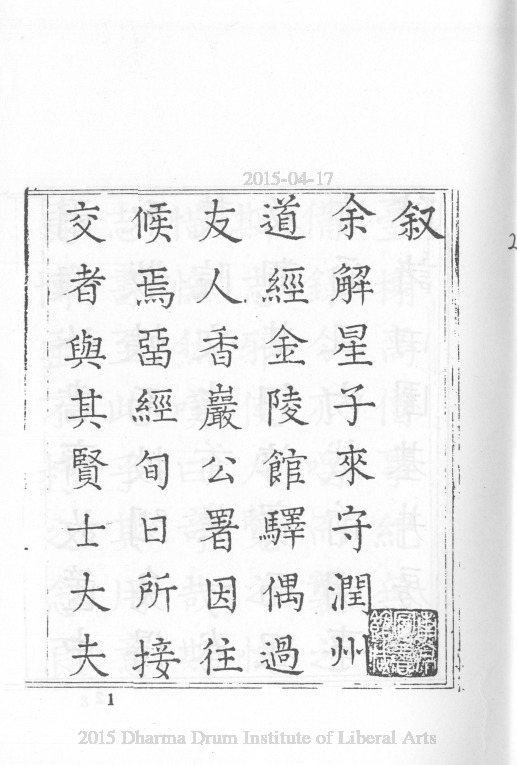 2015-04-17
叙
余解星子來守潤州
道經金陵館驛偶過
友人香巖公署因往
候焉畱經旬日所接
交者與其賢士大夫
1
2015 Dharma Drum Institute of Liberal Arts